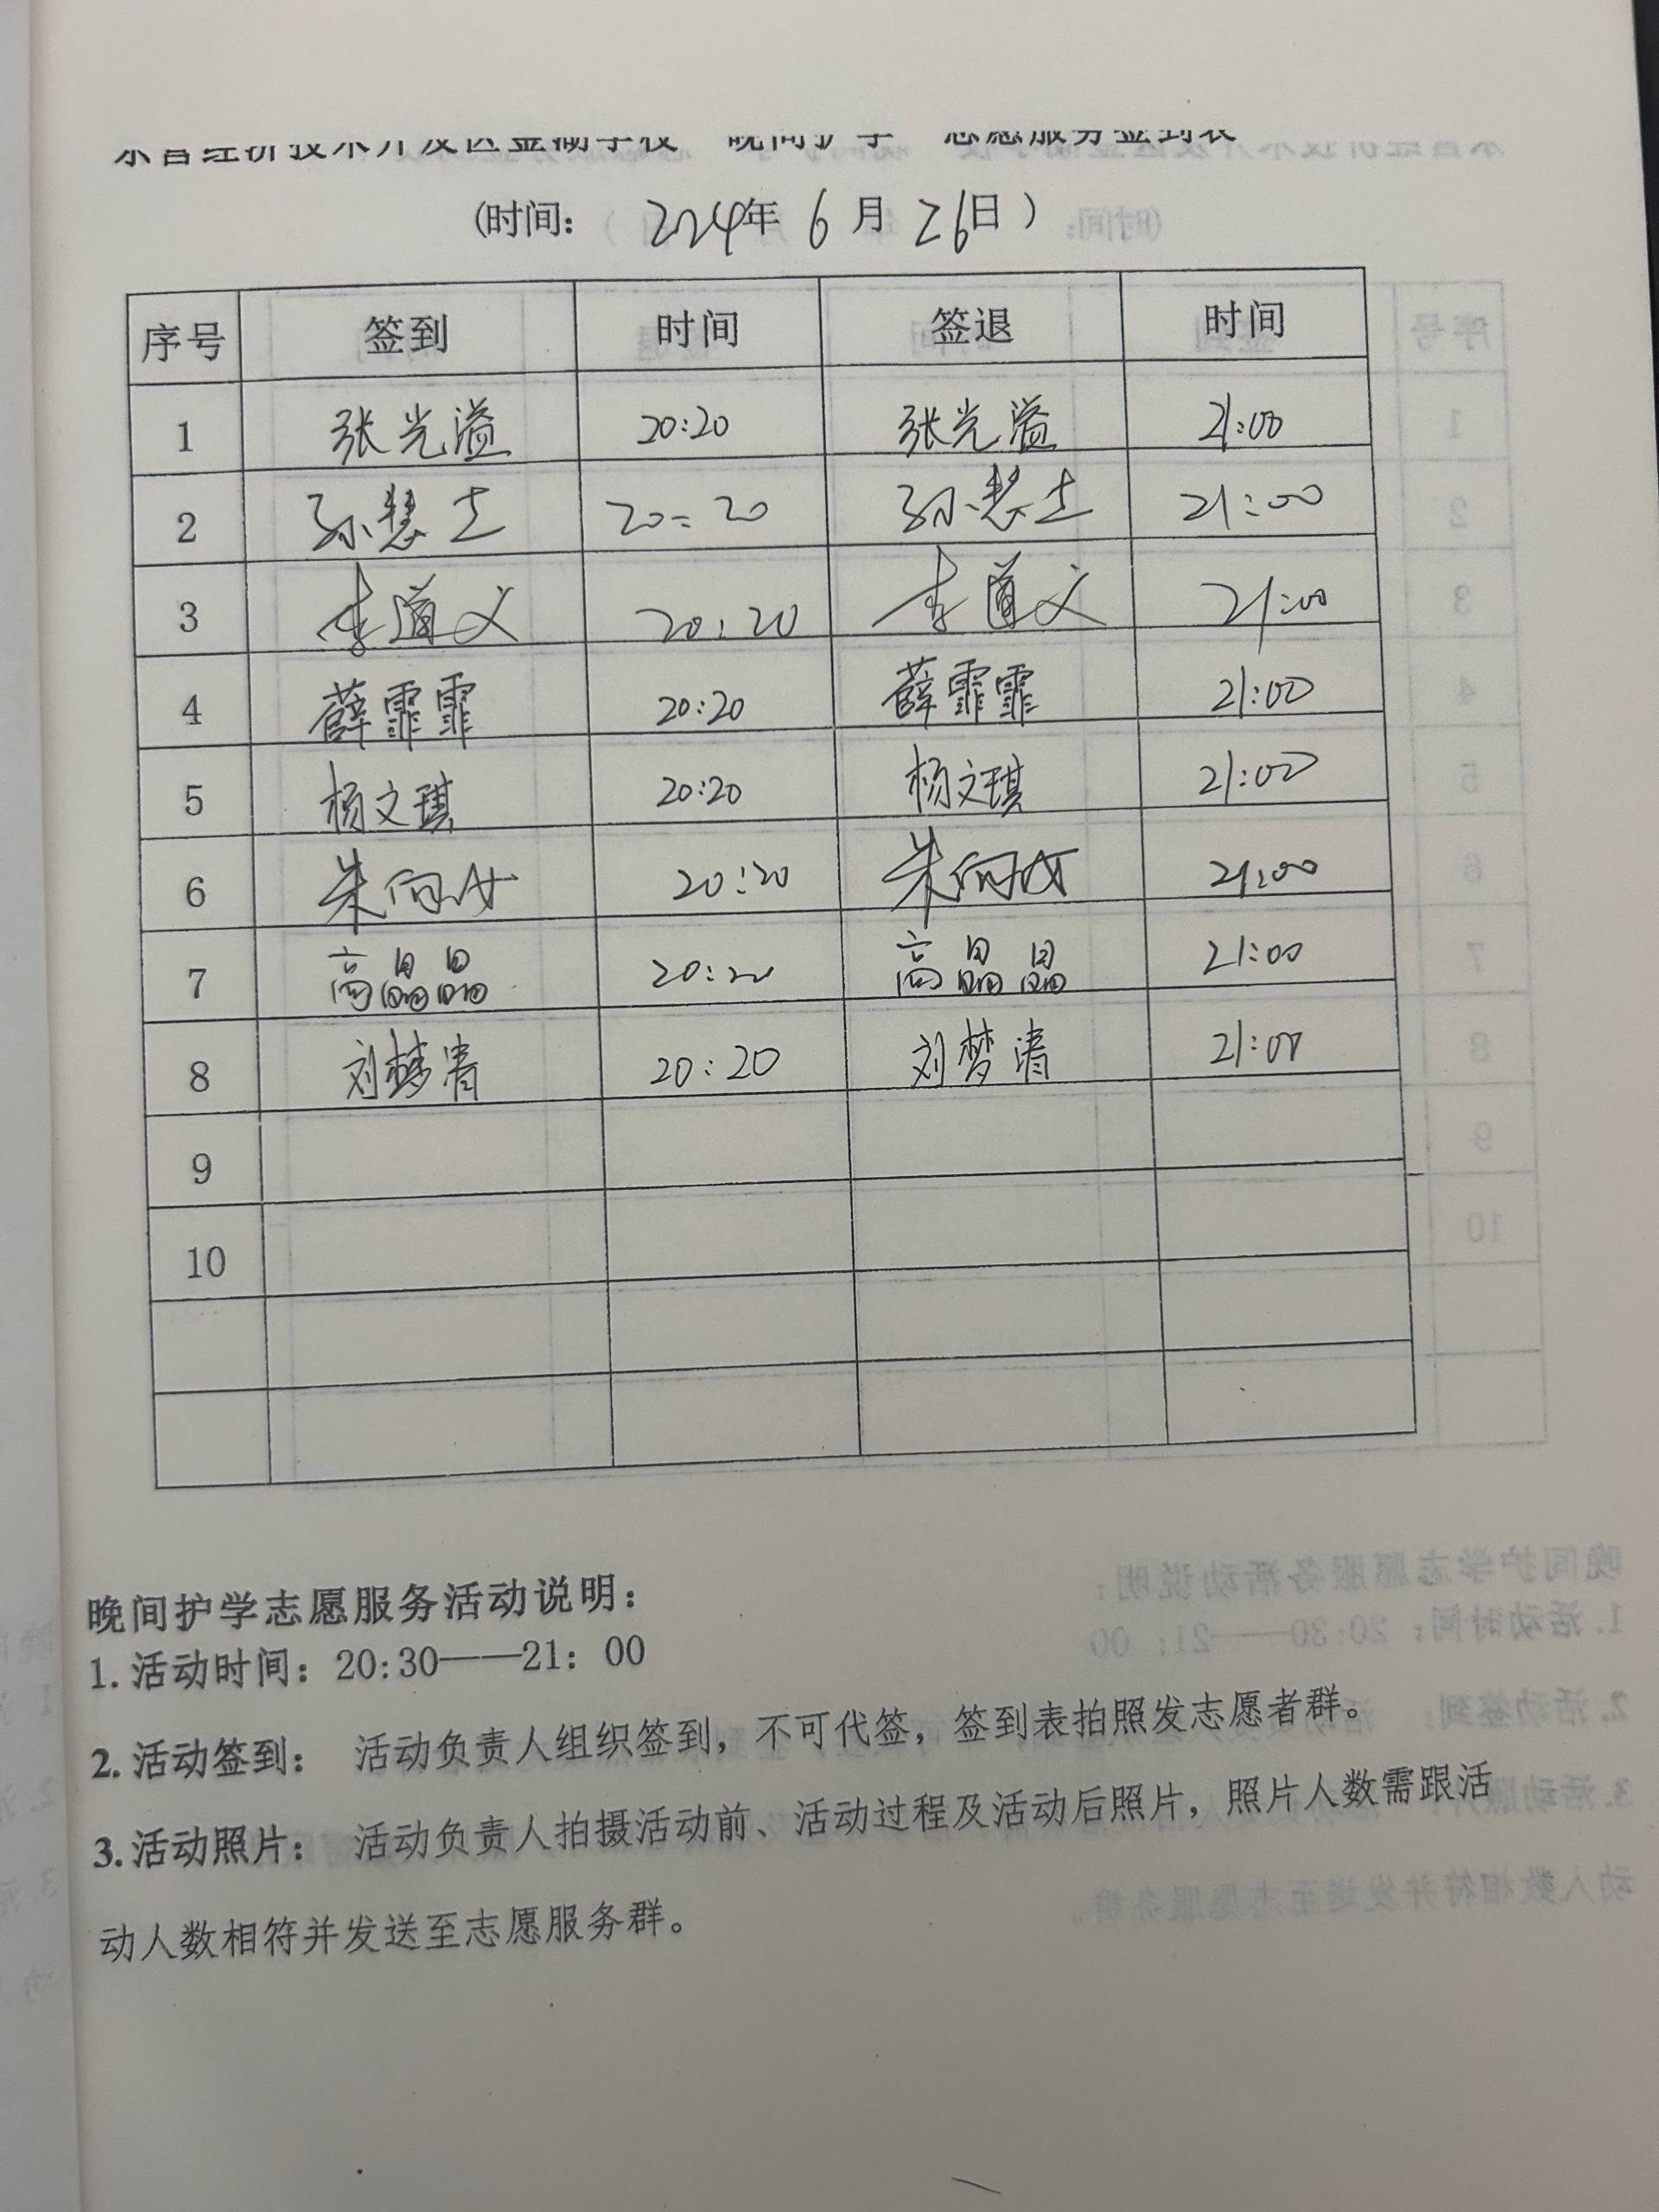 东营经济技术开发区金湖学校 晚间护学 志愿服务签到表
(时间: 2024年 6 月 26日 )
序号 签到 时间 签退 时间
1 张光溢 20:20 张光溢 21:00
2 孙慧 20:20 孙慧 21:00
3 李道义 20:20 李道义 21:00
4 薛霏霏 20:20 薛霏霏 21:00
5 杨文琪 20:20 杨文琪 21:00
6 朱向 20:20 朱向 21:00
7 高晶晶 20:20 高晶晶 21:00
8 刘梦清 20:20 刘梦清 21:00
9
10
晚间护学志愿服务活动说明：
1. 活动时间：20:30——21：00
2. 活动签到： 活动负责人组织签到，不可代签，签到表拍照发志愿者群。
3. 活动照片： 活动负责人拍摄活动前、活动过程及活动后照片，照片人数需跟活
动人数相符并发送至志愿服务群。